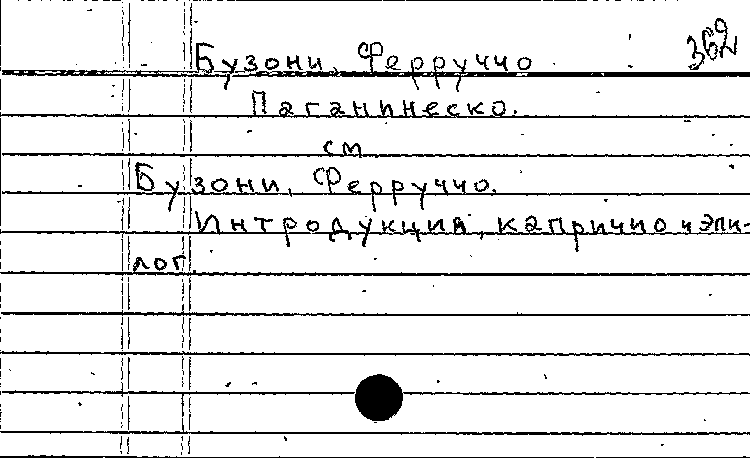 362
Бузони, Ферруччо
Паганинеско.
см
Бузони, Ферруччо.
Интродукция, каприччио и эпи-
лог.